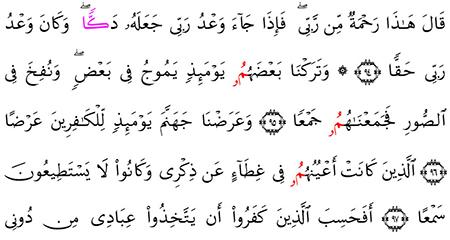 قَالَ هَـٰذَا رَحْمَةٌ مِّن رَّبِّى ۖ فَإِذَا جَآءَ وَعْدُ رَبِّى جَعَلَهُۥ دَكًّا ۖ وَكَانَ وَعْدُ
رَبِّى حَقًّا ﴿٩٤﴾ ۞ وَتَرَكْنَا بَعْضَهُمُۥ يَوْمَئِذٍ يَمُوجُ فِى بَعْضٍ ۖ وَنُفِخَ فِى
ٱلصُّورِ فَجَمَعْنَـٰهُمُۥ جَمْعًا ﴿٩٥﴾ وَعَرَضْنَا جَهَنَّمَ يَوْمَئِذٍ لِّلْكَـٰفِرِينَ عَرْضًا
﴿٩٦﴾ ٱلَّذِينَ كَانَتْ أَعْيُنُهُمُۥ فِى غِطَآءٍ عَن ذِكْرِى وَكَانُوا۟ لَا يَسْتَطِيعُونَ
سَمْعًا ﴿٩٧﴾ أَفَحَسِبَ ٱلَّذِينَ كَفَرُوٓا۟ أَن يَتَّخِذُوا۟ عِبَادِى مِن دُونِى